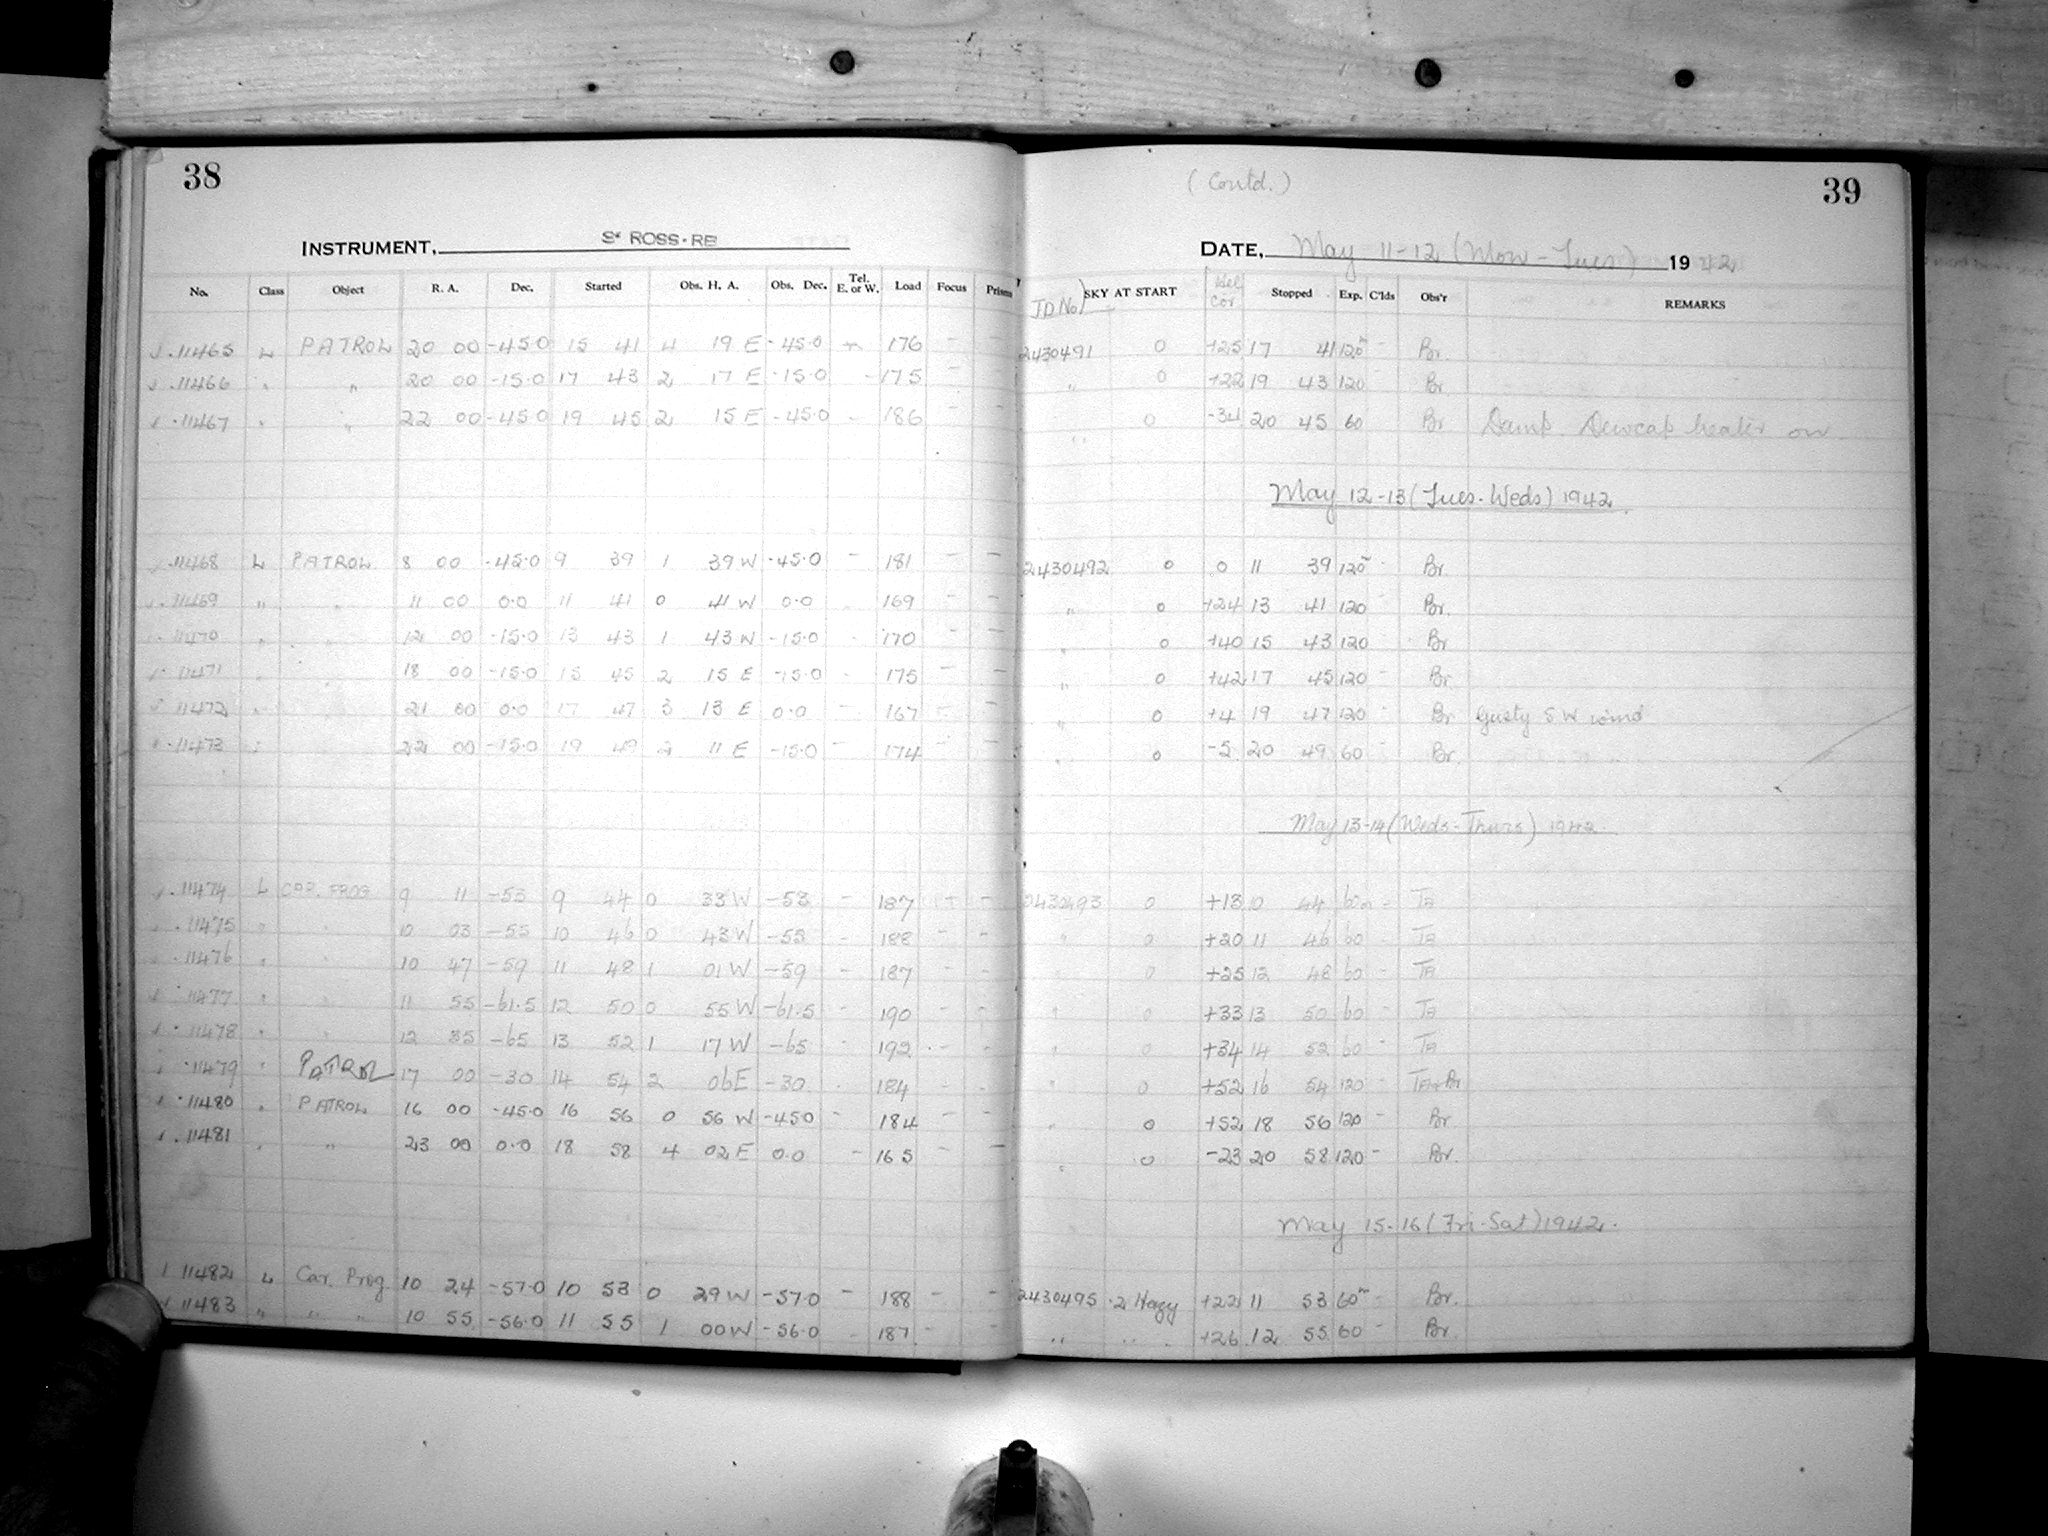 38
INSTRUMENT, ROSS-RB
No. Class Object R. A. Dec. Started Obs. H. A. Obs. Dec. Tel. E. or W. Load Focus Prisms
11465 L PATROL 20 00 -45.0 15 41 4 19 E -45.0 176 - -
11466 " " 20 00 -15.0 17 43 2 17 E -15.0 - 175 - -
11467 " " 22 00 -45.0 19 45 2 15 E -45.0 - 186 - -
11468 L PATROL 8 00 -45.0 9 39 1 39 W -45.0 - 181 - -
11469 " " 11 00 0.0 11 41 0 41 W 0.0 169 - -
11470 " " 12 00 -15.0 13 43 1 43 W -15.0 - 170 - -
11471 " " 18 00 -15.0 15 45 2 15 E -15.0 - 175 - -
11472 " " 21 00 0.0 17 47 3 13 E 0.0 - 167 - -
11473 " 22 00 -15.0 19 49 2 11 E -15.0 - 174 - -
11474 L CAR. PROG 9 11 -53 9 44 0 33 W -53 - 187 - -
11475 " " 10 03 -55 10 46 0 43 W -55 - 188 - -
11476 " " 10 47 -59 11 48 1 01 W -59 - 187 - -
11477 " " 11 55 -61.5 12 50 0 55 W -61.5 - 190 - -
11478 " " 12 35 -65 13 52 1 17 W -65 - 192 - -
11479 " PATROL 17 00 -30 14 54 2 06 E -30 184 - -
11480 " PATROL 16 00 -45.0 16 56 0 56 W -45.0 - 184 - -
11481 " " 23 00 0.0 18 58 4 02 E 0.0 - 165 - -
11482 L Car. Prog 10 24 -57.0 10 53 0 29 W -57.0 - 188 - -
11483 " " " 10 55 -56.0 11 55 1 00 W -56.0 - 187 - -
(Contd.)
39
DATE, May 11-12 (Mon-Tues) 1942
JD No) SKY AT START cor Stopped Exp. C'lds Obs'r REMARKS
2430491 0 +25 17 41 120m - Br.
" 0 +22 19 43 120 Br
" 0 -34 20 45 60 Br Damp. Dewcap heater on
May 12-13 (Tues-Weds) 1942.
2430492 0 0 11 39 120m - Br.
" 0 +24 13 41 120 - Br.
" 0 +40 15 43 120 Br
" 0 +42 17 45 120 - Br
" 0 +4 19 47 120 - Br Gusty SW wind
" 0 -5 20 49 60 - Br.
May 13-14 (Weds-Thurs) 1942
2430493 0 +13 10 44 60m -
" 0 +20 11 46 60 -
" 0 +25 12 48 60 -
" 0 +33 13 50 60 -
" 0 +34 14 52 60 -
" 0 +52 16 54 120 - Br
" 0 +52 18 56 120 - Br.
" 0 -23 20 58 120 - Br.
May 15-16 (Fri-Sat) 1942.
2430495 .2 Hazy +22 11 53 60m - Br.
" " +26 12 55 60 - Br.